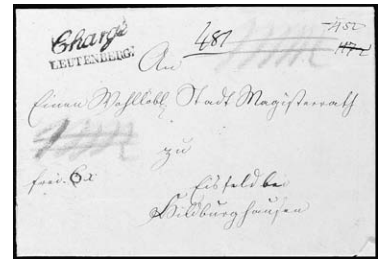 Chargé
LEUTENBERG.
481
An
Einen Wohllobl. Stadt Magisterrath
zu
frei. 6x
Eisfeld bei
Hildburghausen